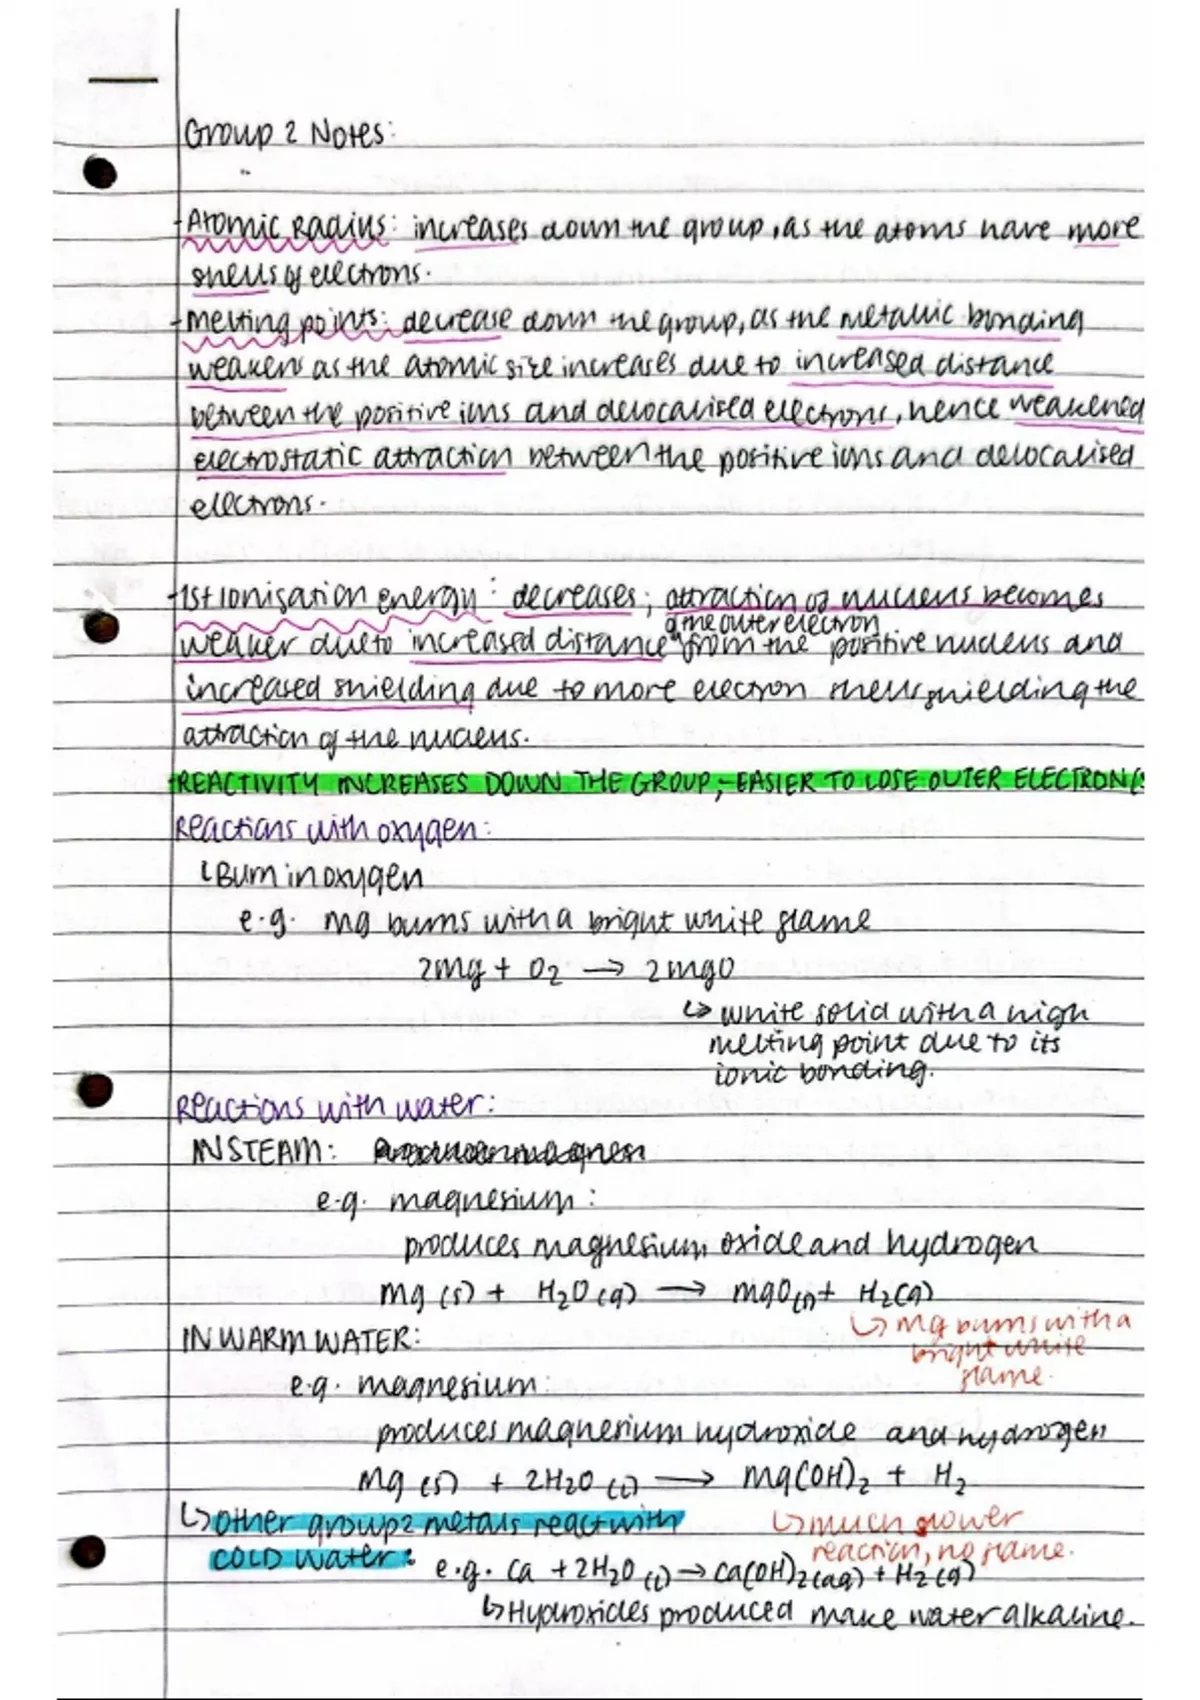 Group 2 Notes:
-Atomic Radius: increases down the group, as the atoms have more
shells of electrons.
-Melting points: decrease down the group, as the metallic bonding
weakens as the atomic size increases due to increased distance
between the positive ions and delocalised electrons, hence weakened
electrostatic attraction between the positive ions and delocalised
electrons.
-1st Ionisation energy: decreases; attraction of nucleus becomes
of the outer electron
weaker due to increased distance from the positive nucleus and
increased shielding due to more electron shells shielding the
attraction of the nucleus.
REACTIVITY INCREASES DOWN THE GROUP,-EASIER TO LOSE OUTER ELECTRON(S
Reactions with oxygen:
↳Burn in oxygen
e.g. Mg burns with a bright white flame
2Mg + O₂ → 2MgO
↳ white solid with a high
melting point due to its
ionic bonding.
Reactions with water:
IN STEAM:
e.g. magnesium:
produces magnesium oxide and hydrogen
Mg (s) + H₂O (g) → MgO(s) + H₂(g)
↳ Mg burns with a
bright white
flame.
IN WARM WATER:
e.g. magnesium:
produces magnesium hydroxide and hydrogen
Mg (s) + 2H₂O (l) → Mg(OH)₂ + H₂
↳ much slower
reaction, no flame.
↳ other group 2 metals react with
COLD water:
e.g. Ca + 2H₂O (l) → Ca(OH)₂(aq) + H₂(g)
↳ Hydroxides produced make water alkaline.